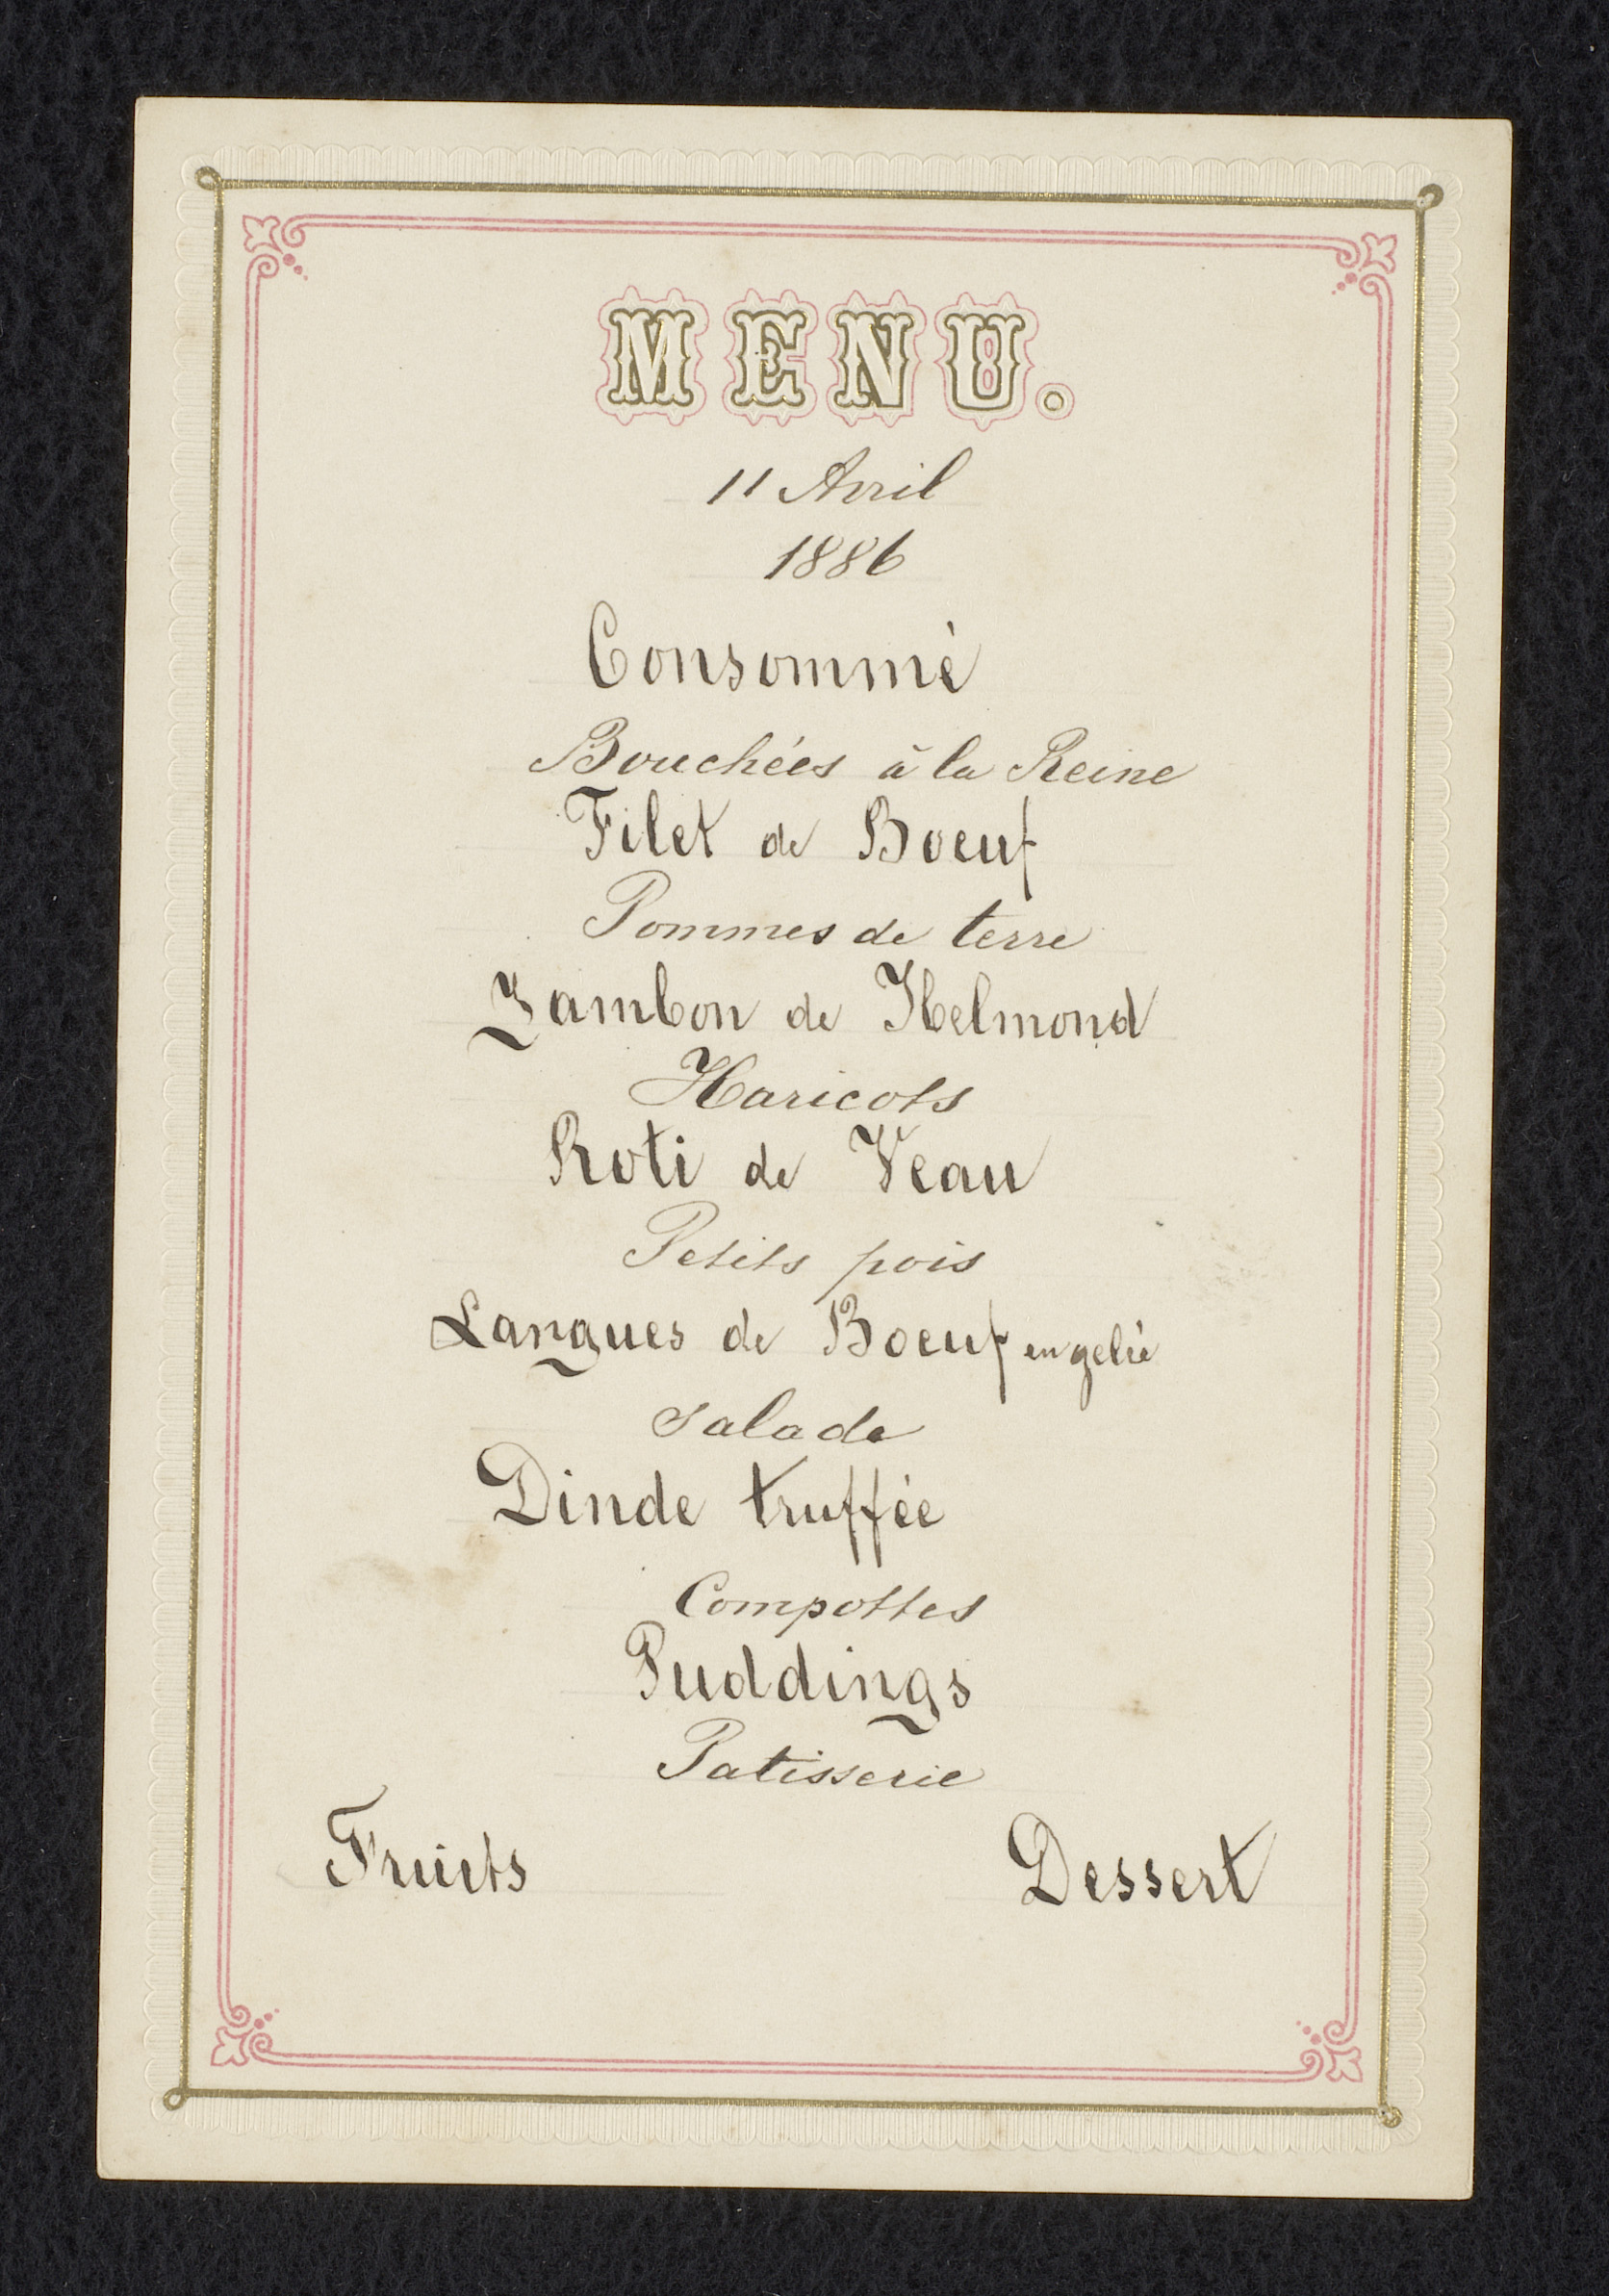 MENU.
11 Avril
1886
Consommé
Bouchées à la Reine
Filet de Boeuf
Pommes de terre
Jambon de Helmond
Haricots
Roti de Veau
Petits pois
Langues de Boeuf en gelée
Salade
Dinde truffée
Compottes
Puddings
Patisserie
Fruits Dessert